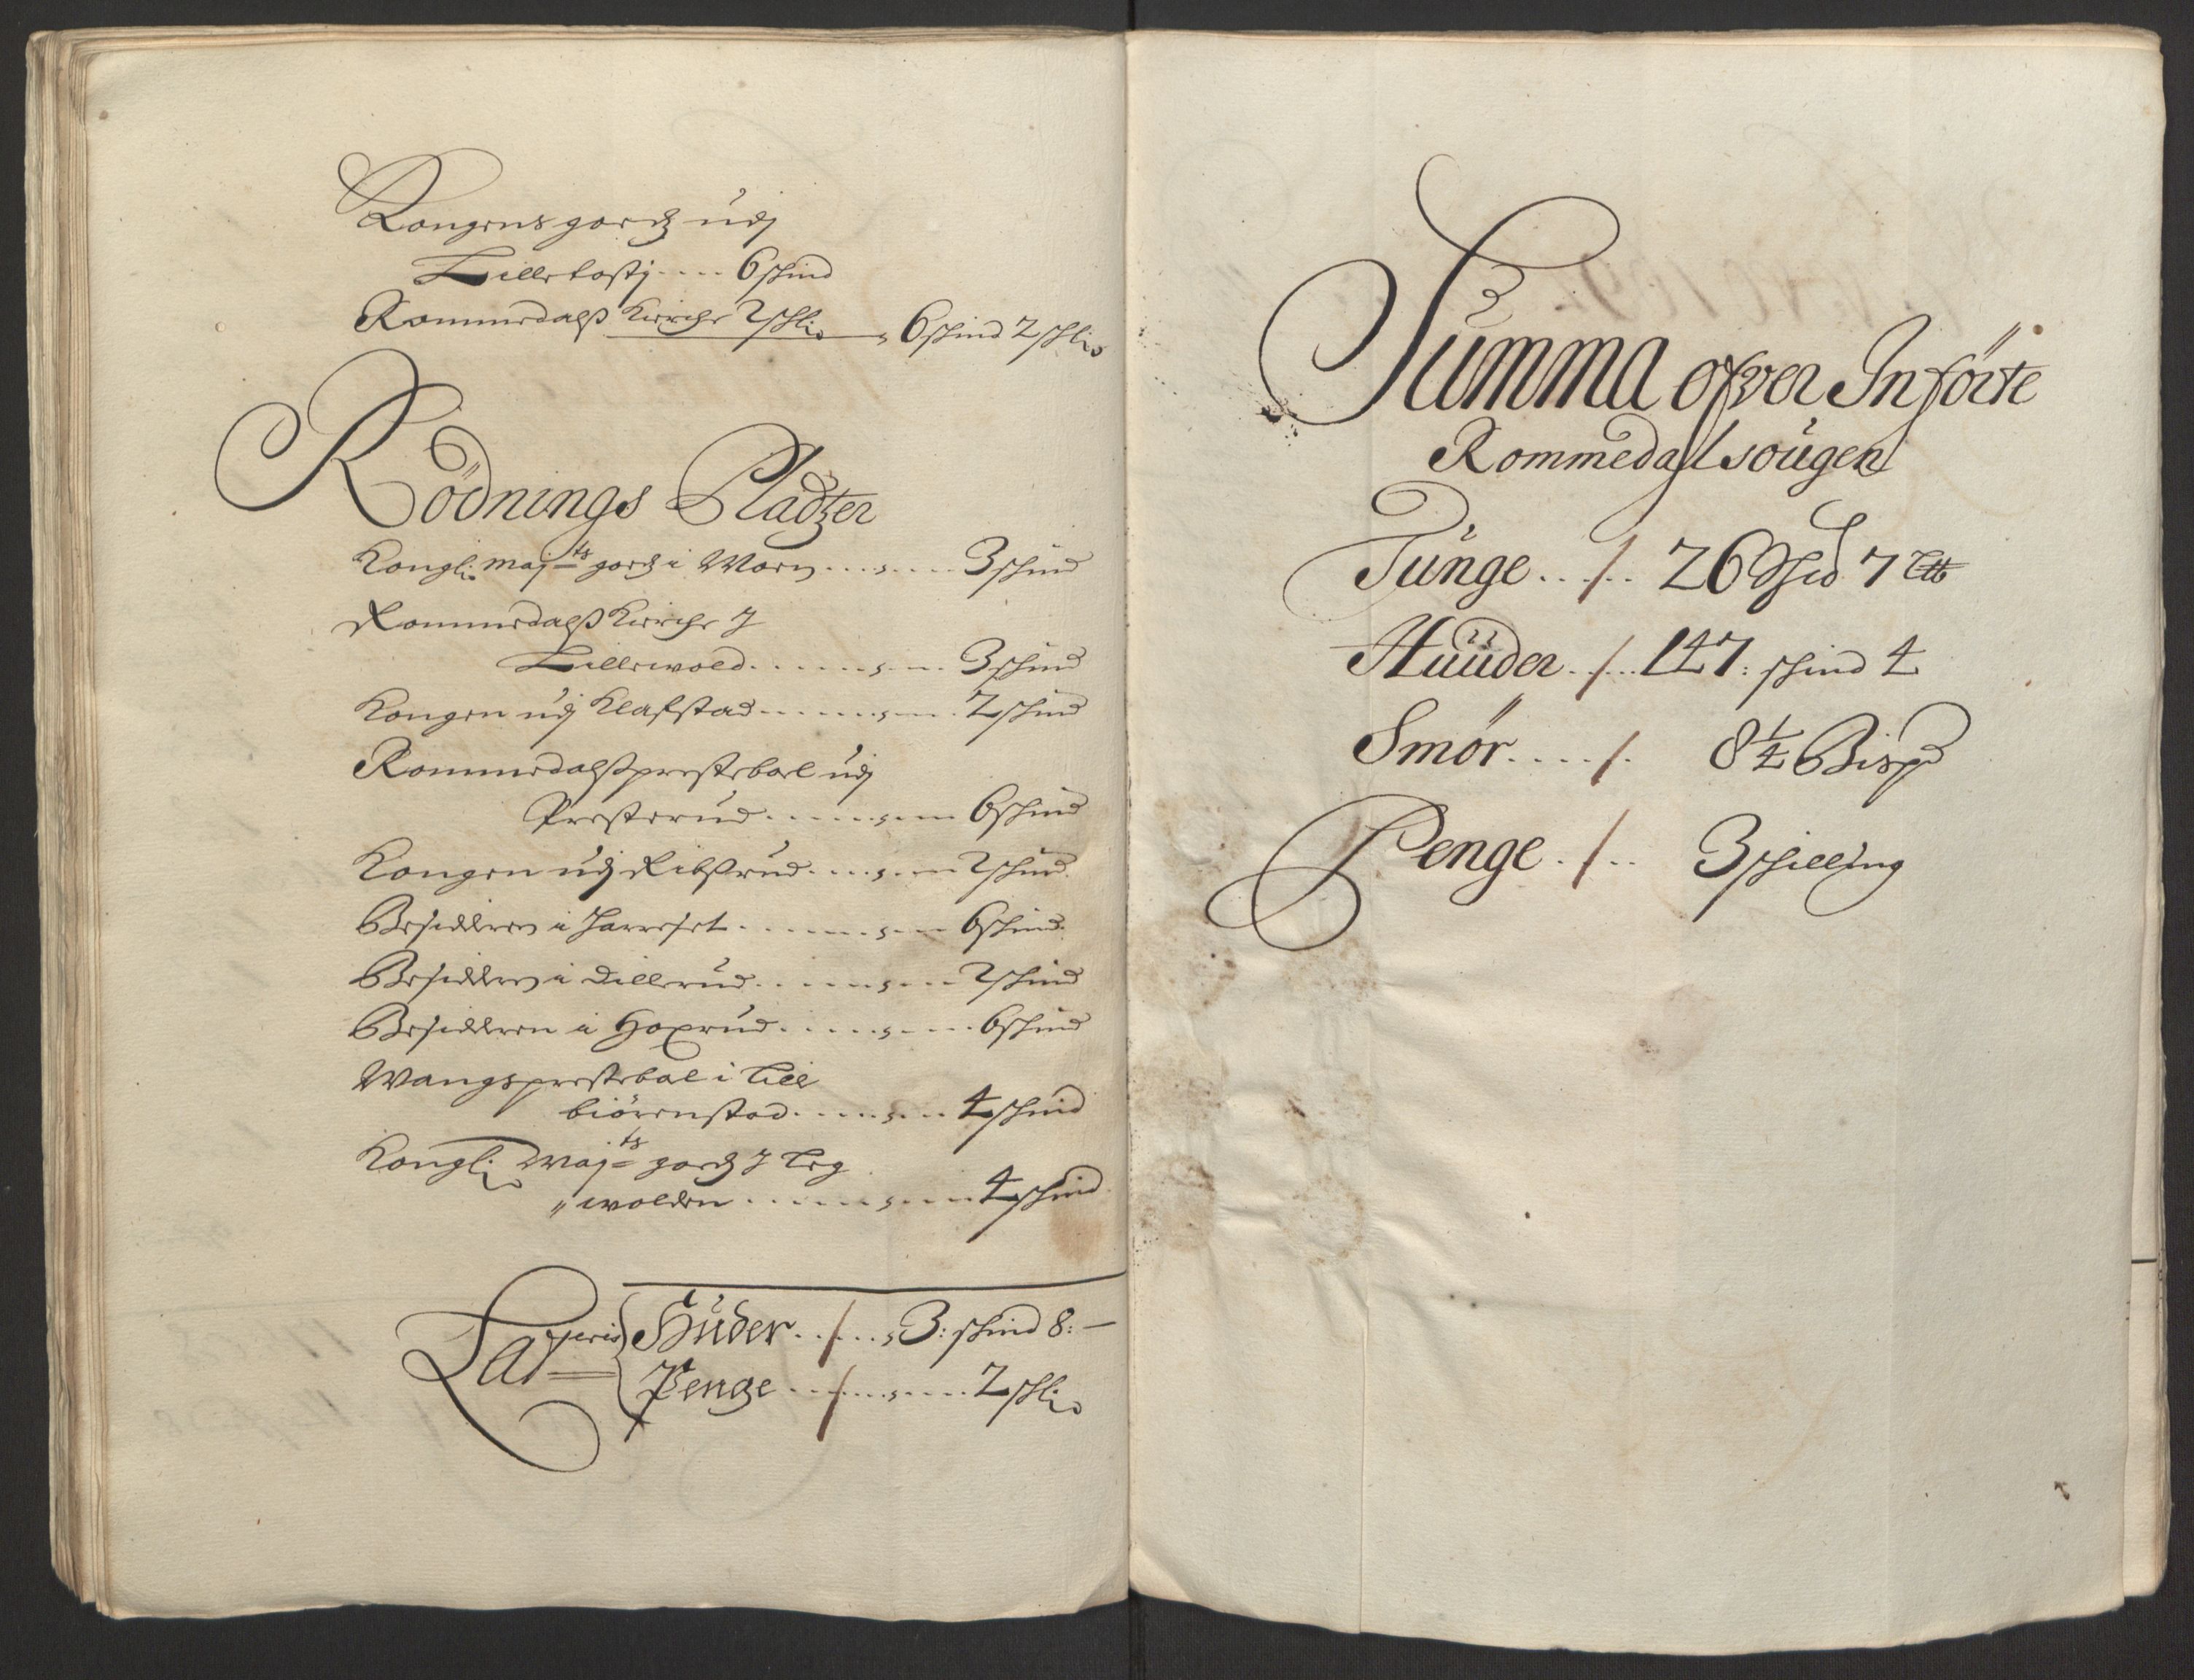 Kongens gordz udj
Lilletostj .... 6 schind
Rommedalß Kirche 2 schl: , 6 schind 2 schl:
Rödnings Pladtzer
Kongl: Maj:ts gordz i Worn ... , ... 3 schind
Rommedalß Kirche J
Lillewold ...... , ... 3 schind
Kongen udj Klafstad ...... , ... 2 schind
Rommedalß prestebol udj
Presterud ...... , ... 6 schind
Kongen udj Ribßrud .... , ... 2 schind
Besidderen i Harreset ...... , ... 6 schind
Besidderen i Dillerud ...... , ... 2 schind
Besidderen i Hoxrud ..... , .... 6 schind
Wangs prestebol i Lill
biörenstad ..... , ... 4 schind
Kongl: Maj:ts gordz J Leg
„ wolden ...... , .... 4 schind
Lat{eris Huder .. / .. , 3: schind 8: —
Penge ... / ... , .... 2 schl:
Summa ofver Införte
Rommedall sougen
Tunge .. / .. 26 Schd 7 Ltb
Huuder . / ... 147: schind 4
Smör .... / . 8 1/4 Bispd
Penge . / .. 3 schilling